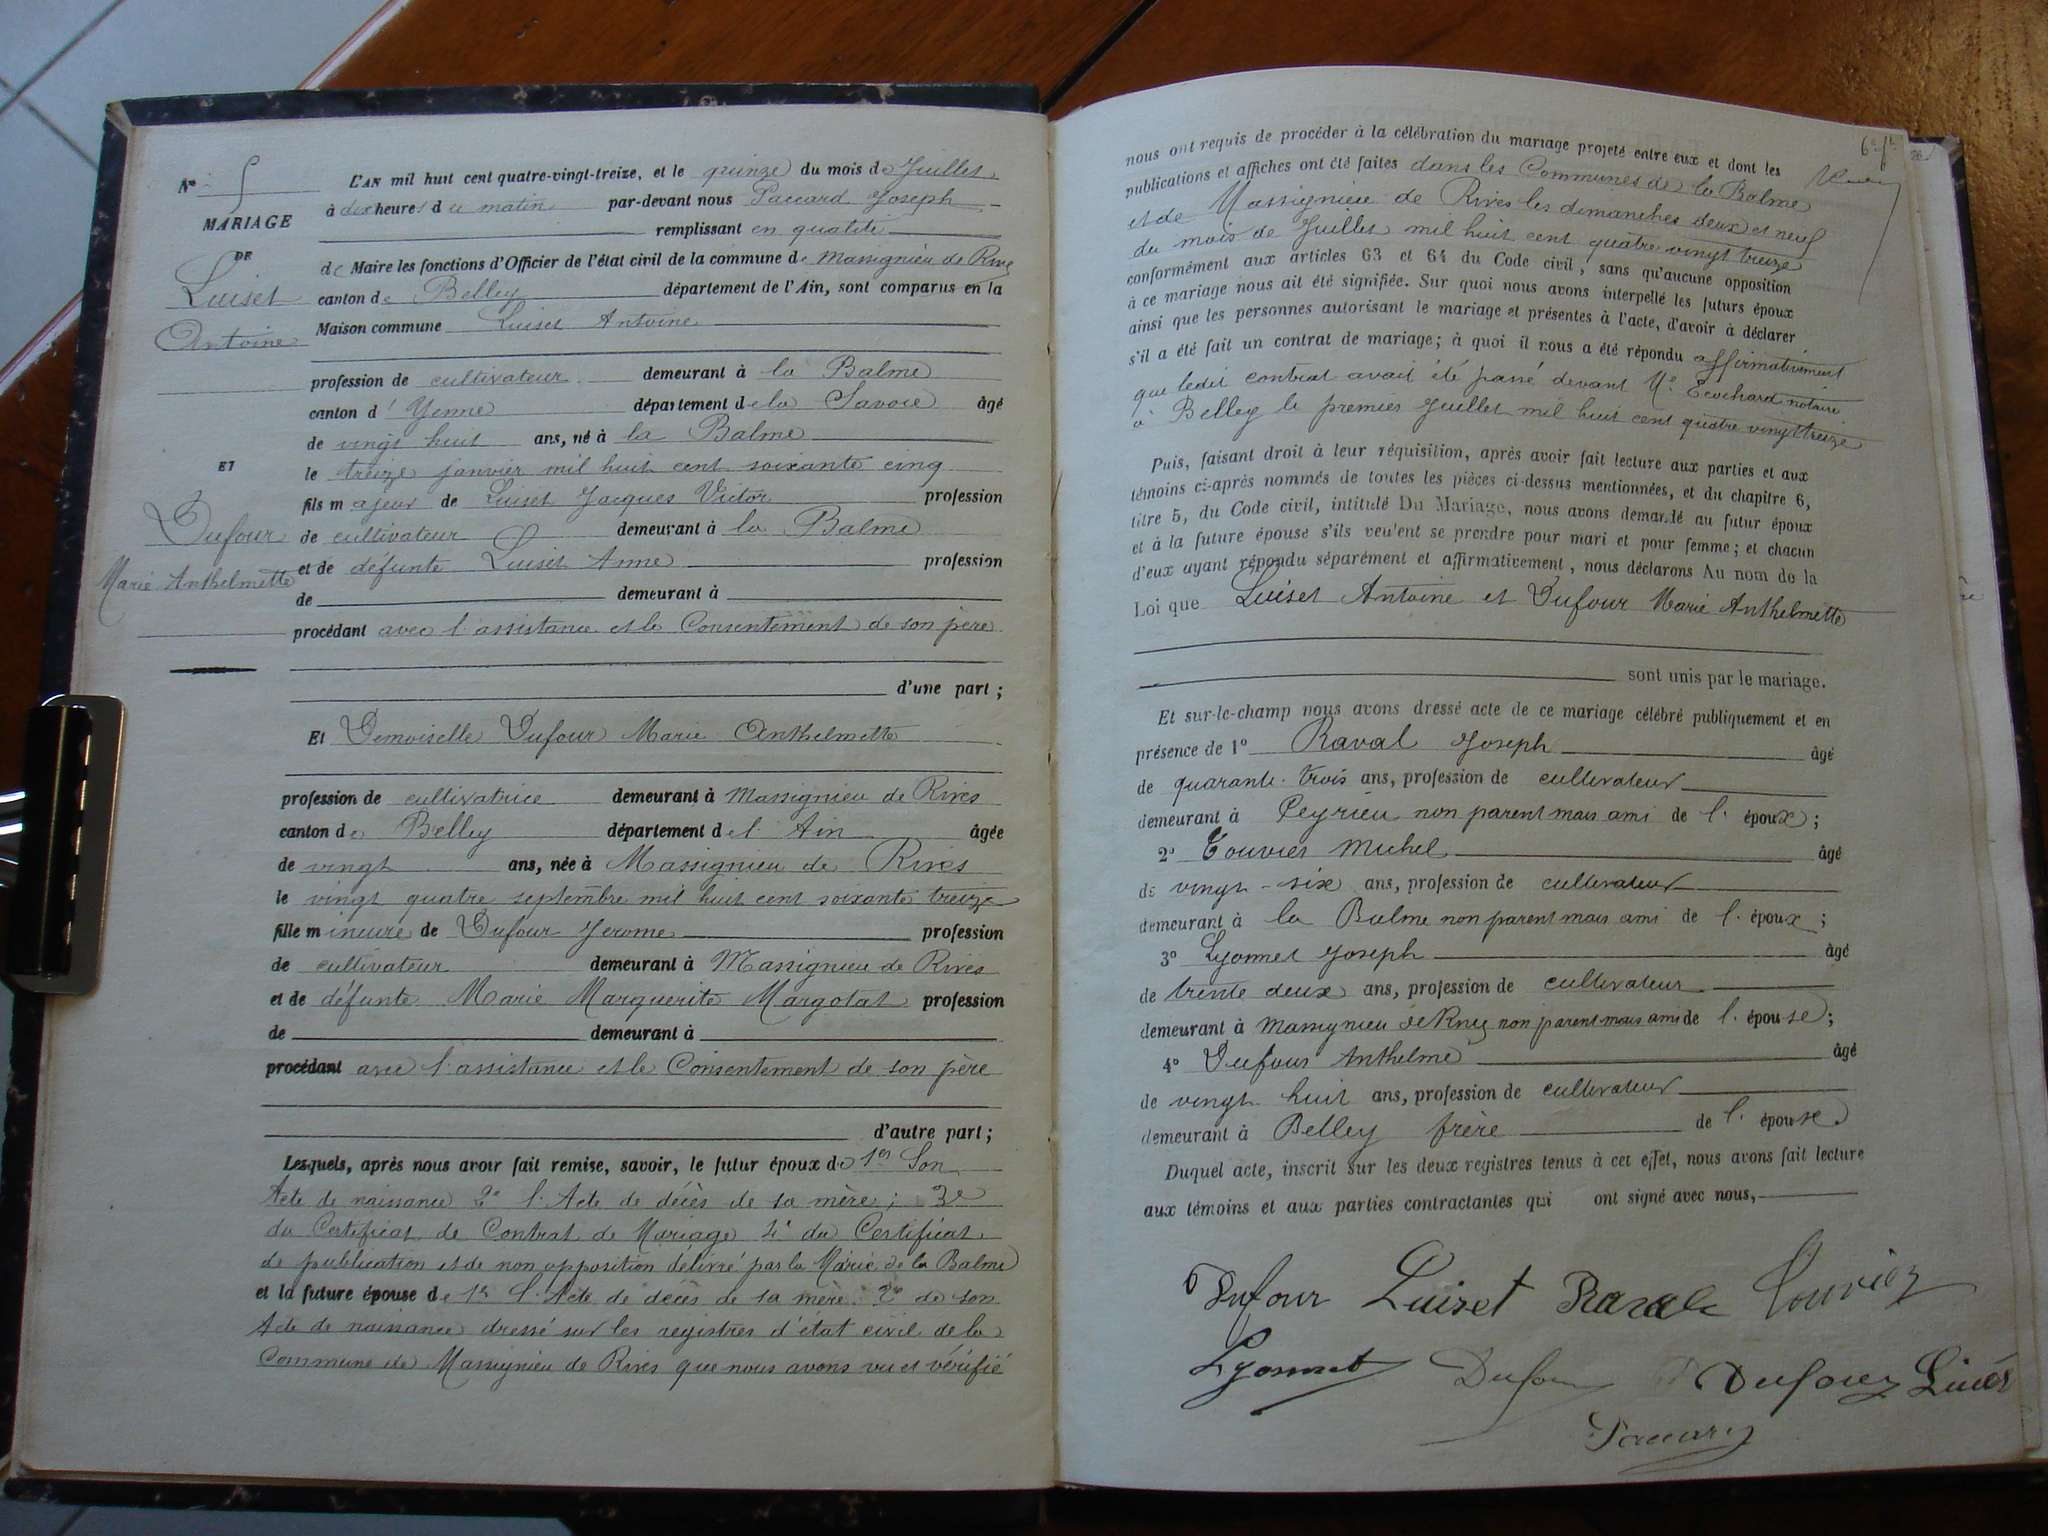 N° 5
MARIAGE
DE
Luiset
Antoine
ET
Dufour
Marie Anthelmette
L'AN mil huit cent quatre-vingt-treize, et le quinze du mois de Juillet
à dix heures du matin par-devant nous Paccard Joseph
remplissant en qualité
de Maire les fonctions d'Officier de l'état civil de la commune de Massignieu de Rives
canton de Belley département de l'Ain, sont comparus en la
Maison commune Luiset Antoine
profession de cultivateur demeurant à la Balme
canton d' Yenne département de la Savoie âgé
de vingt huit ans, né à la Balme
le treize janvier mil huit cent soixante cinq
fils majeur de Luiset Jacques Victor profession
de cultivateur demeurant à la Balme
et de défunte Luiset Anne profession
de demeurant à
procédant avec l'assistance et le Consentement de son père
d'une part ;
Et Demoiselle Dufour Marie Anthelmette
profession de cultivatrice demeurant à Massignieu de Rives
canton de Belley département de l'Ain âgée
de vingt ans, née à Massignieu de Rives
le vingt quatre septembre mil huit cent soixante treize
fille mineure de Dufour Jerome profession
de cultivateur demeurant à Massignieu de Rives
et de défunte Marie Marguerite Margotat profession
de demeurant à
procédant avec l'assistance et le Consentement de son père
d'autre part ;
Lesquels, après nous avoir fait remise, savoir, le futur époux de 1er Son
Acte de naissance 2e l'Acte de décès de sa mère ; 3e
du Certificat de Contrat de Mariage 4e du Certificat
de publication et de non opposition délivré par la Mairie de la Balme
et la future épouse de 1er l'Acte de décès de sa mère. 2e de son
Acte de naissance dressé sur les registres d'état civil de la
Commune de Massignieu de Rives que nous avons vu et vérifié
6e ft
nous ont requis de procéder à la célébration du mariage projeté entre eux et dont les
publications et affiches ont été faites dans les Communes de la Balme
et de Massignieu de Rives les dimanches deux et neuf
du mois de Juillet mil huit cent quatre vingt treize
conformément aux articles 63 et 64 du Code civil, sans qu'aucune opposition
à ce mariage nous ait été signifiée. Sur quoi nous avons interpellé les futurs époux
ainsi que les personnes autorisant le mariage et présentes à l'acte, d'avoir à déclarer
s'il a été fait un contrat de mariage ; à quoi il nous a été répondu affirmativement
que ledit contrat avait été passé devant Me Ecochard notaire
à Belley le premier Juillet mil huit cent quatre vingt treize
Puis, faisant droit à leur réquisition, après avoir fait lecture aux parties et aux
témoins ci-après nommés de toutes les pièces ci-dessus mentionnées, et du chapitre 6,
titre 5, du Code civil, intitulé Du Mariage, nous avons demandé au futur époux
et à la future épouse s'ils veulent se prendre pour mari et pour femme ; et chacun
d'eux ayant répondu séparément et affirmativement, nous déclarons Au nom de la
Loi que Luiset Antoine et Dufour Marie Anthelmette
sont unis par le mariage.
Et sur-le-champ nous avons dressé acte de ce mariage célébré publiquement et en
présence de 1° Raval Joseph âgé
de quarante-trois ans, profession de cultivateur
demeurant à Peyrieu non parent mais ami de l'époux ;
2° Touvier Michel âgé
de vingt-six ans, profession de cultivateur
demeurant à la Balme non parent mais ami de l'époux ;
3° Lyonnet Joseph âgé
de trente deux ans, profession de cultivateur
demeurant à Massignieu de Rives non parent mais ami de l'épouse ;
4° Dufour Anthelme âgé
de vingt huit ans, profession de cultivateur
demeurant à Belley frère de l'épouse
Duquel acte, inscrit sur les deux registres tenus à cet effet, nous avons fait lecture
aux témoins et aux parties contractantes qui ont signé avec nous,
Dufour Luizet Raval Touvier
Lyonnet Dufour Dufour Luiset
Paccard